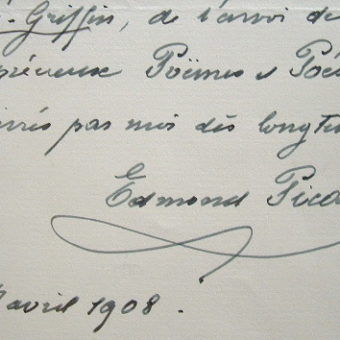 Griffin, de l'envoi de
précieux Poëmes & Poé
pas moi dès longtem
Edmond Pica
avril 1908.